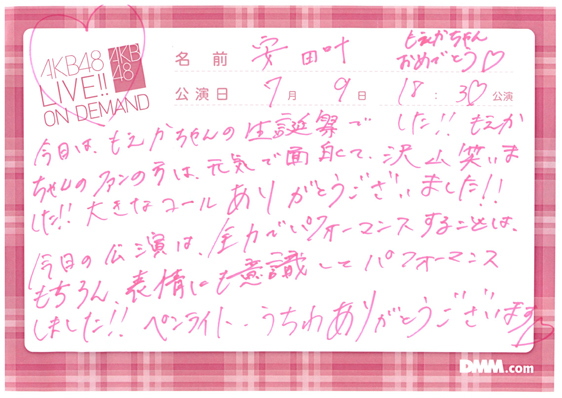 AKB48
LIVE!!
ON DEMAND
AKB
48
名前 安田叶
もえかちゃん
おめでとう♡
公演日 7月 9日 18:30公演
今日は、もえかちゃんの生誕祭でした!! もえか
ちゃんのファンの方は、元気で面白くて、沢山笑いま
した!! 大きなコールありがとうございました!!
今日の公演は、全力でパフォーマンスすることは、
もちろん、表情にも意識してパフォーマンス
しました!! ペンライト、うちわありがとうございます♡
DMM.com